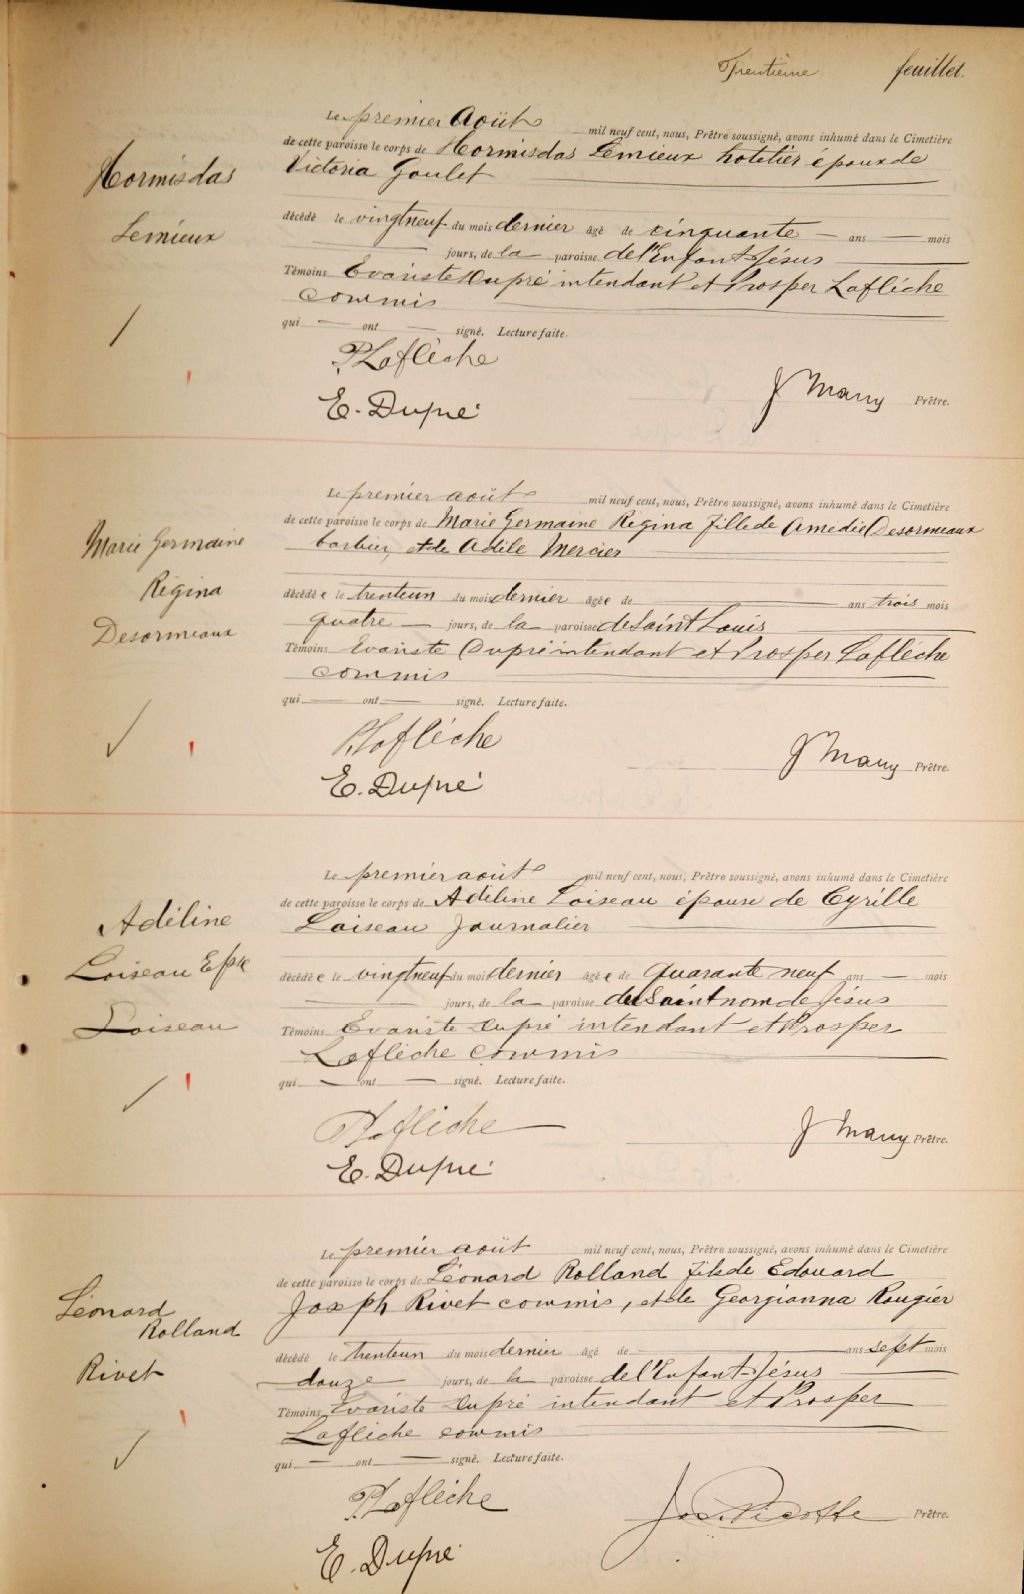 Trentième feuillet.
Le premier Août mil neuf cent, nous, Prêtre soussigné, avons inhumé dans le Cimetière
de cette paroisse le corps de Hormisdas Lemieux hotelier époux de
Victoria Goulet
Hormisdas
Lemieux
décédé le vingtneuf du mois dernier âgé de cinquante — ans — mois
— jours, de la paroisse de l'Enfant-Jésus
Témoins Evariste Dupré intendant et Prosper Laflèche
commis
qui — ont — signé. Lecture faite.
P. Laflèche
E. Dupré
J Many Prêtre.
Le premier août mil neuf cent, nous, Prêtre soussigné, avons inhumé dans le Cimetière
de cette paroisse le corps de Marie Germaine Régina fille de Amedié Desormeaux
barbier, et de Adèle Mercier
Marie Germaine
Régina
Desormeaux
décédée le trenteun du mois dernier âgée de — ans trois mois
quatre — jours, de la paroisse de Saint Louis
Témoins Evariste Dupré intendant et Prosper Laflèche
commis
qui — ont — signé. Lecture faite.
P. Laflèche
E. Dupré
J Many Prêtre.
Le premier août mil neuf cent, nous, Prêtre soussigné, avons inhumé dans le Cimetière
de cette paroisse le corps de Adéline Loiseau épouse de Cyrille
Loiseau Journalier
Adéline
Loiseau Epse
Loiseau
décédée le vingtneuf du mois dernier âgée de quarante neuf ans — mois
— jours, de la paroisse du Saint nom de Jésus
Témoins Evariste Dupré intendant et Prosper
Laflèche commis
qui — ont — signé. Lecture faite.
P Laflèche
E. Dupré
J Many Prêtre.
Le premier août mil neuf cent, nous, Prêtre soussigné, avons inhumé dans le Cimetière
de cette paroisse le corps de Léonard Rolland fils de Edouard
Joseph Rivet commis, et de Georgianna Rougier
Léonard
Rolland
Rivet
décédé le trenteun du mois dernier âgé de — ans sept mois
douze jours, de la paroisse de l'Enfant-Jésus
Témoins Evariste Dupré intendant et Prosper
Laflèche commis
qui — ont — signé. Lecture faite.
P. Laflèche
E. Dupré
Jos. Picotte Prêtre.